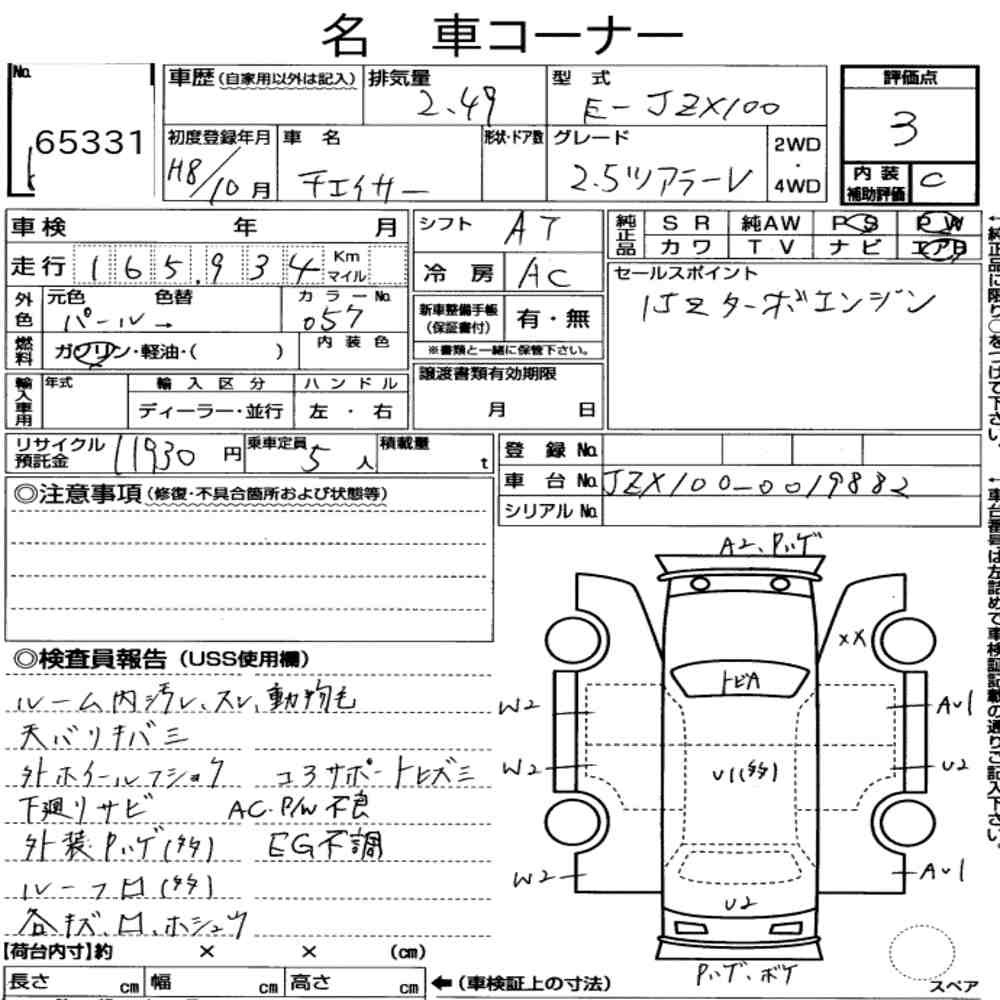 名 車コーナー
No.
65331
車歴(自家用以外は記入)
排気量
2.49
型 式
E-JZX100
評価点
3
初度登録年月
H8/10月
車 名
チェイサー
形状・ドア数
グレード
2.5ツアラーV
2WD
・
4WD
内 装
補助評価
C
車検 年 月
シフト
AT
純正品
SR 純AW PS PW
カワ TV ナビ エアB
走行 165,934 Km
マイル
冷 房
AC
セールスポイント
1JZターボエンジン
外色
元色 色替
パール→
カラーNo.
057
新車整備手帳
(保証書付)
有・無
※書類と一緒に保管下さい。
燃料
ガソリン・軽油・( )
内装色
輸入車用
年式
輸入区分
ディーラー・並行
ハンドル
左・右
譲渡書類有効期限
月 日
リサイクル
預託金
11930円
乗車定員
5人
積載量
t
登 録 No.
車 台 No. JZX100-0019882
シリアル No.
◎注意事項(修復・不具合箇所および状態等)
◎検査員報告(USS使用欄)
ルーム内汚レ、スレ、動物毛
天バリキバミ
外ホイールフショク コアサポートヒズミ
下廻りサビ AC・P/W不良
外装Pハゲ(多) EG不調
ルーフ凹(多)
各キズ、凹、ホシュウ
【荷台内寸】約 × × (cm)
長さ cm 幅 cm 高さ cm
←(車検証上の寸法)
A2、Pハゲ
XX
トビA
W2
AU1
W2
U1(多)
U2
W2
AU1
U2
Pハゲ、ボケ
スペア
←純正品に限り○をつけて下さい。
←車台番号は左詰めで車検証記載の通りご記入下さい。